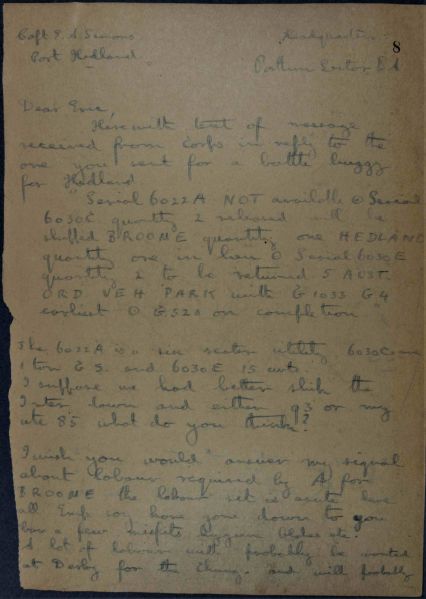 Capt E. A. Simons
Port Hedland
Headquarters
8
Dear Eric,
Herewith text of message
received from Corps in reply to the
one you sent for a battle buggy
for Hedland
"Serial 6022A NOT available ⊙ Serial
6030C quantity 2 released will be
shipped BROOME quantity one HEDLAND
quantity one in lieu ⊙ Serial 6030E
quantity 2 to be returned 5 AUST
ORD VEH PARK with G1033 G4
earliest ⊙ on completion"
The 6022A is a six seater utility 6030C
1 ton G.S. and 6030E 15 cwt.
I suppose we had better stick the
Inter down and either 93 or my
ute 85 what do you think?
I wish you would answer my signal
about labour required by A for
BROOME the labour is acute here
all have gone down to you
bar a few misfits hygiene blokes etc.
A lot of labour will probably be wanted
at Derby for the and will probably